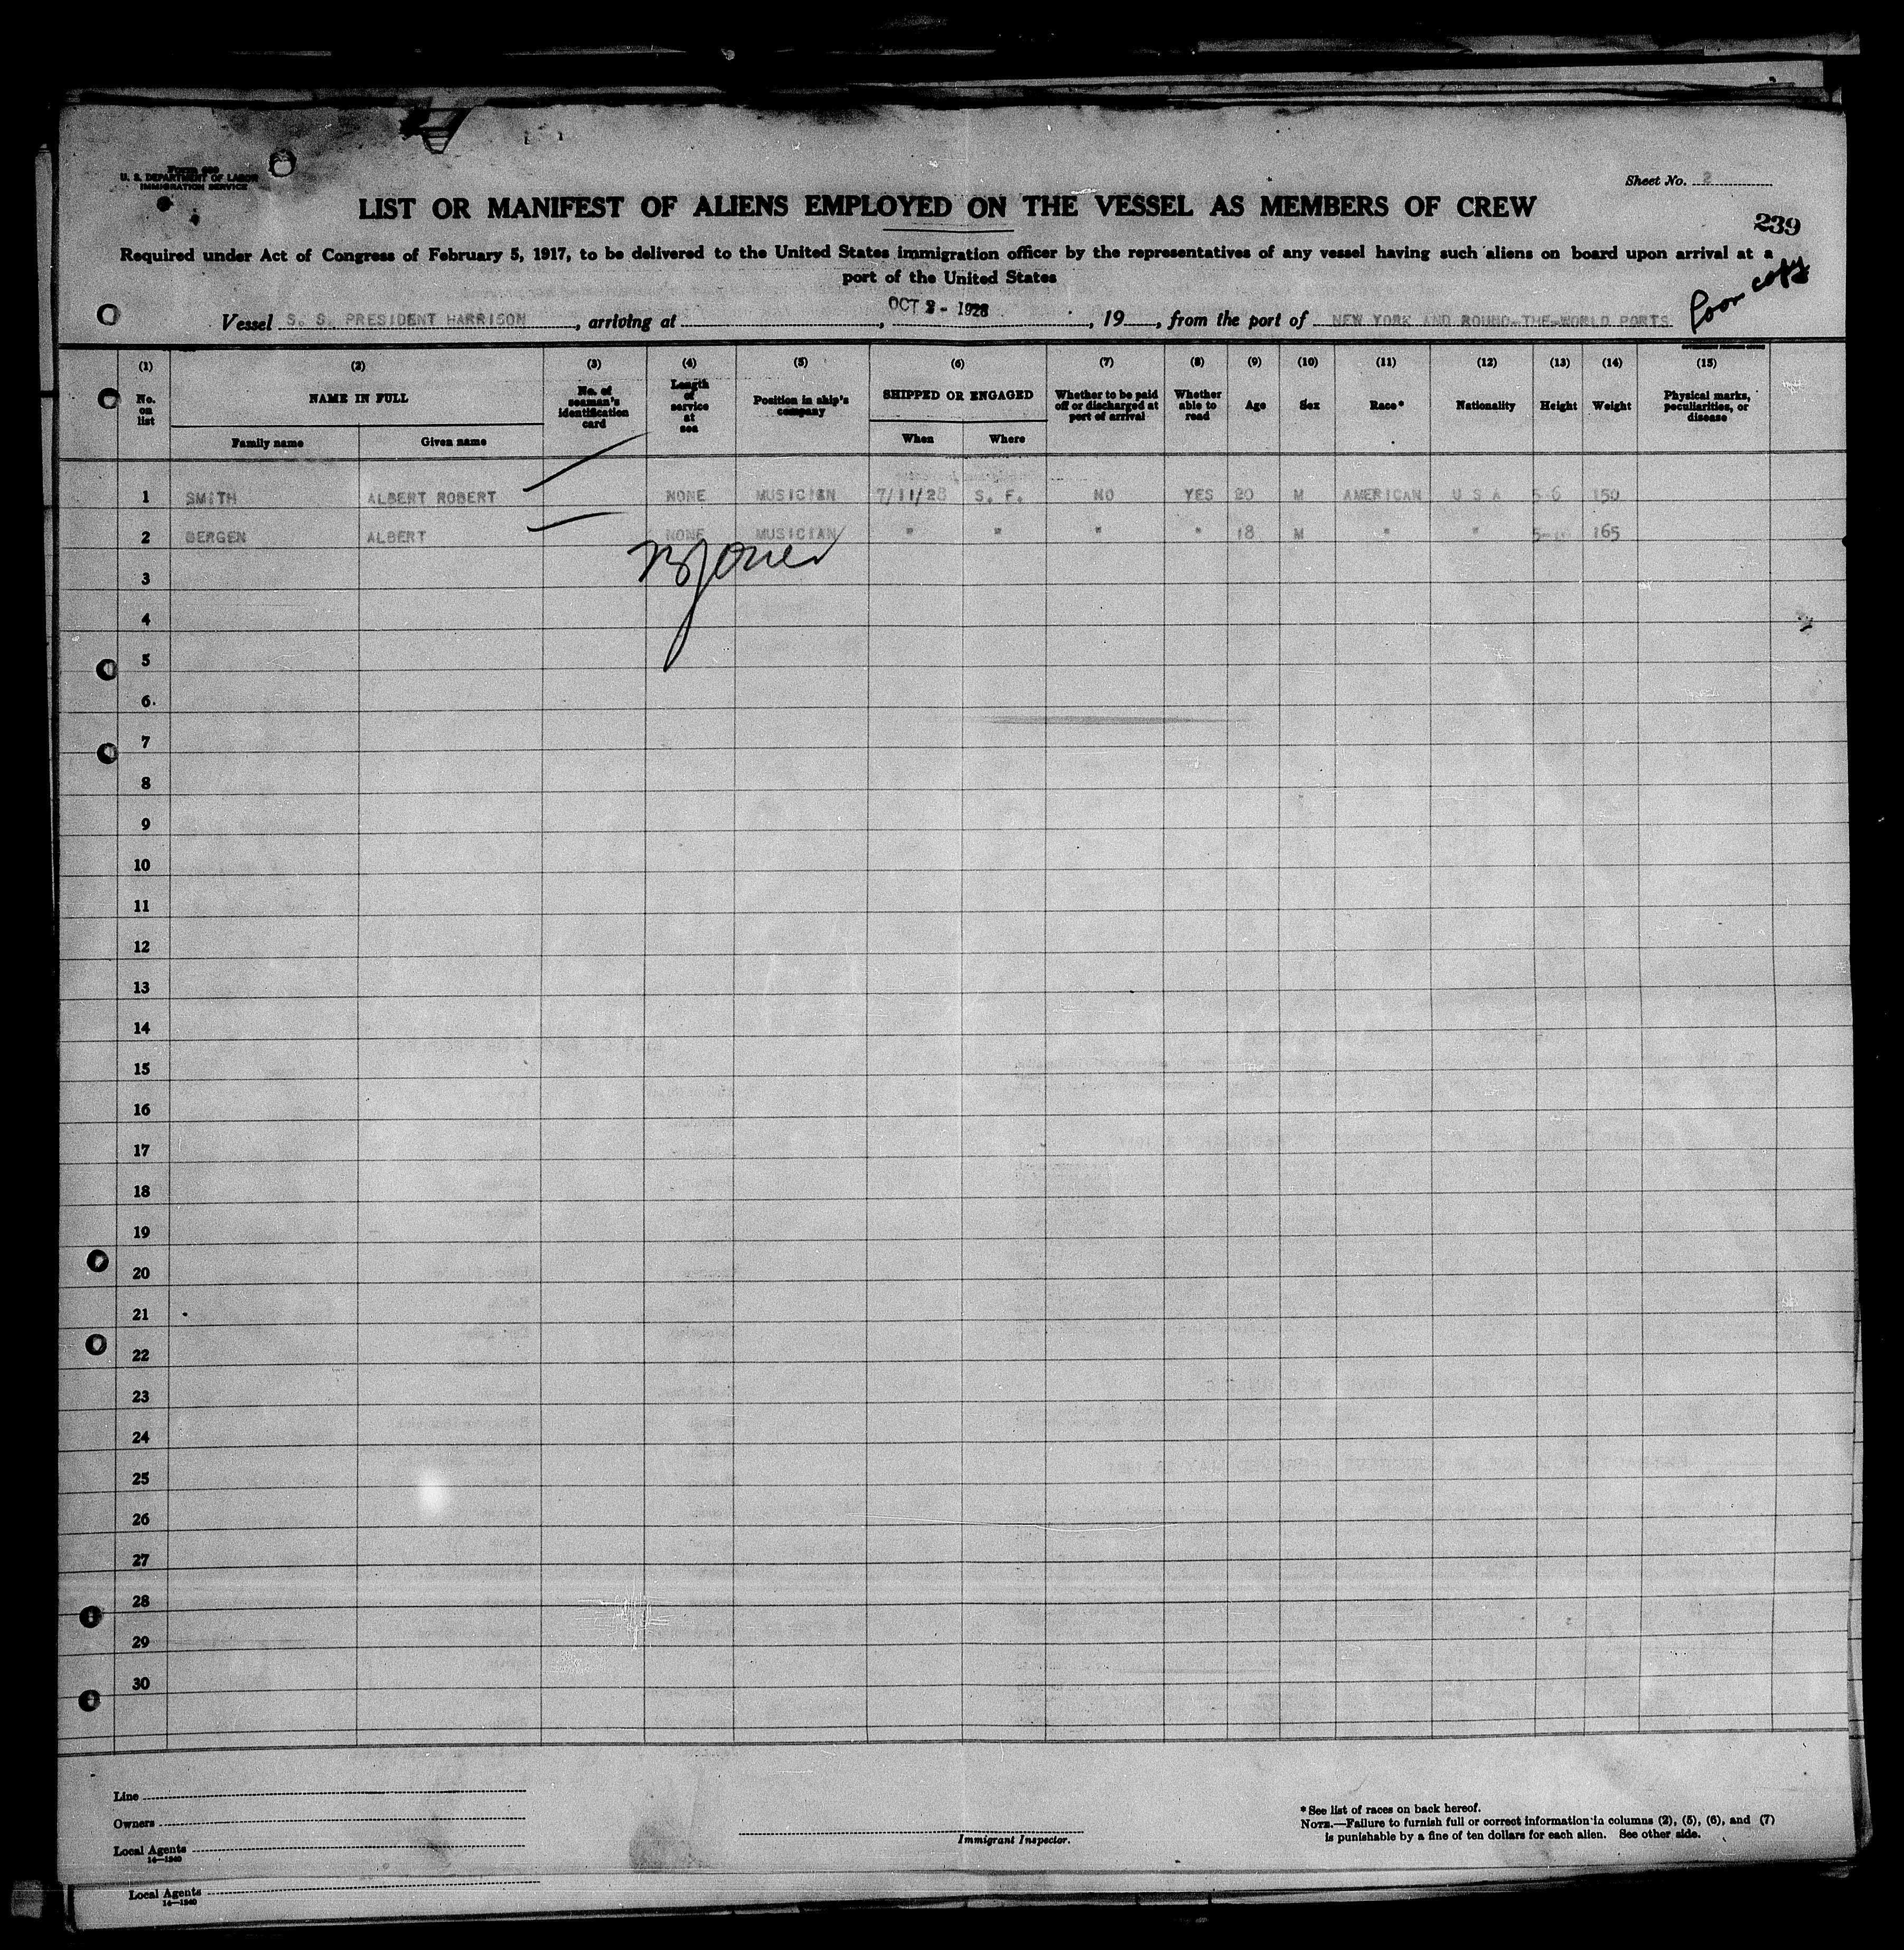 Form 680
U. S. DEPARTMENT OF LABOR
IMMIGRATION SERVICE
Sheet No. 2
LIST OR MANIFEST OF ALIENS EMPLOYED ON THE VESSEL AS MEMBERS OF CREW
239
Required under Act of Congress of February 5, 1917, to be delivered to the United States immigration officer by the representatives of any vessel having such aliens on board upon arrival at a
port of the United States
Poor copy
Vessel S. S. PRESIDENT HARRISON, arriving at , OCT 2 - 1928, 19 , from the port of NEW YORK AND ROUND-THE-WORLD PORTS
(1) (2) (3) (4) (5) (6) (7) (8) (9) (10) (11) (12) (13) (14) (15)
No. on list NAME IN FULL No. of seaman's identification card Length of service at sea Position in ship's company SHIPPED OR ENGAGED Whether to be paid off or discharged at port of arrival Whether able to read Age Sex Race* Nationality Height Weight Physical marks, peculiarities, or disease
Family name Given name When Where
1 SMITH ALBERT ROBERT NONE MUSICIAN 7/11/28 S. F. NO YES 20 M AMERICAN U S A 5-6 150
2 BERGEN ALBERT NONE MUSICIAN " " " " 18 M " " 165
3
4
5
6
7
8
9
10
11
12
13
14
15
16
17
18
19
20
21
22
23
24
25
26
27
28
29
30
Line
Owners
Local Agents
14—1240
Immigrant Inspector.
*See list of races on back hereof.
NOTE.—Failure to furnish full or correct information in columns (2), (5), (6), and (7)
is punishable by a fine of ten dollars for each alien. See other side.
Local Agents
14—1240